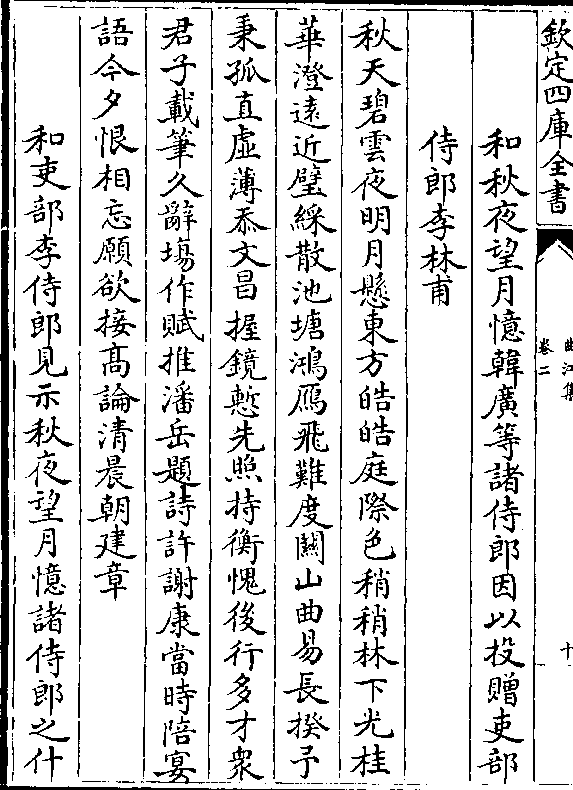 欽定四庫全書
曲江集
卷二
十
和秋夜望月憶韓廣等諸侍郎因以投贈吏部
侍郎李林甫
秋天碧雲夜明月懸東方皓皓庭際色稍稍林下光桂
華澄遠近璧綵散池塘鴻鴈飛難度關山曲易長揆予
秉孤直虛薄忝文昌握鏡慙先照持衡愧後行多才衆
君子載筆久辭塲作賦推潘岳題詩許謝康當時陪宴
語今夕恨相忘願欲接髙論清晨朝建章
和吏部李侍郎見示秋夜望月憶諸侍郎之什